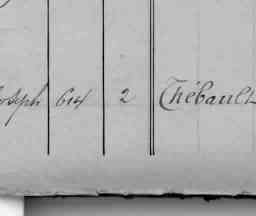 oseph 64 2 Thébault